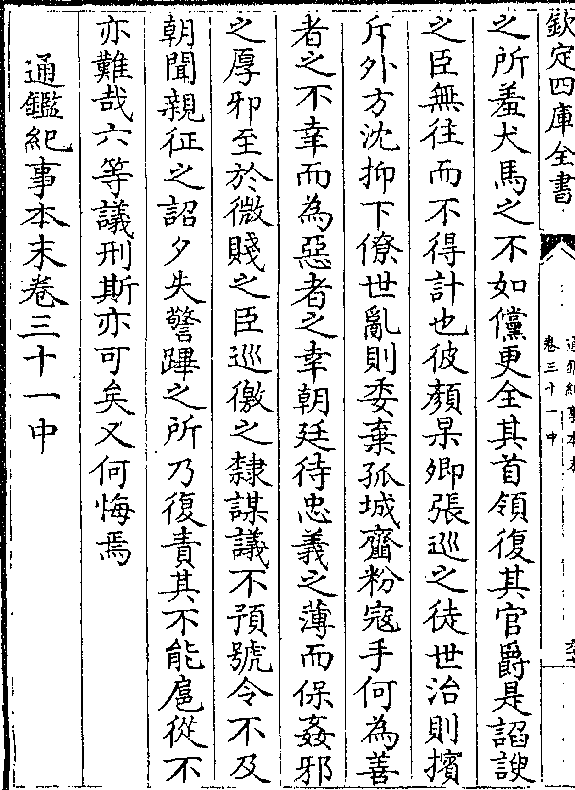 欽定四庫全書
卷三十一中
之所羞犬馬之不如儻更全其首領復其官爵是諂諛
之臣無往而不得計也彼顏杲卿張巡之徒世治則擯
斥外方沈抑下僚世亂則委棄孤城齏粉寇手何為善
者之不幸而為惡者之幸朝廷待忠義之薄而保姦邪
之厚邪至於微賤之臣巡徼之隸謀議不預號令不及
朝聞親征之詔夕失警蹕之所乃復責其不能扈從不
亦難哉六等議刑斯亦可矣又何悔焉
通鑑紀事本末卷三十一中